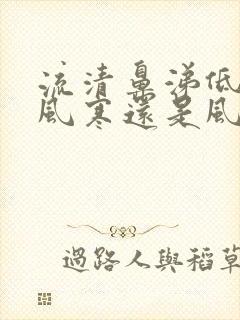 流清鼻涕低
風寒還是風
過路人與稻草